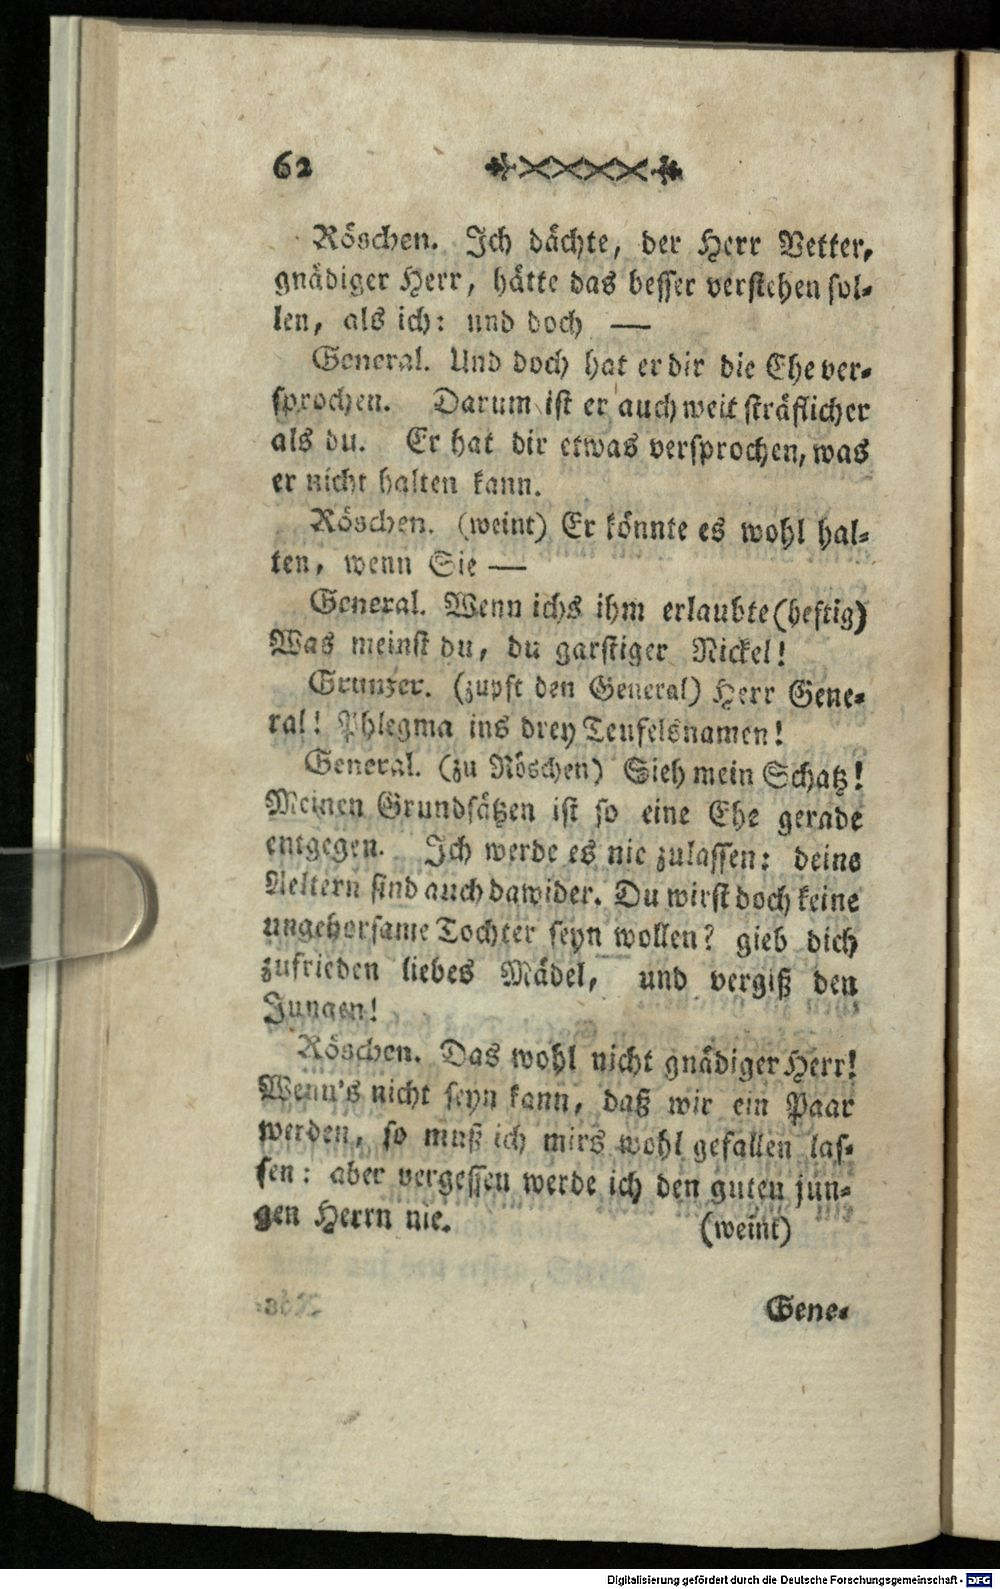 62
Röschen. Ich dächte, der Herr Vetter,
gnädiger Herr, hätte das besser verstehen sol-
len, als ich: und doch —
General. Und doch hat er dir die Ehe ver-
sprochen. Darum ist er auch weit sträflicher
als du. Er hat dir etwas versprochen, was
er nicht halten kann.
Röschen. (weint) Er könnte es wohl hal-
ten, wenn Sie —
General. Wenn ichs ihm erlaubte (heftig)
Was meinst du, du garstiger Nickel!
Grunzer. (zupft den General) Herr Gene-
ral! Phlegma ins drey Teufelsnamen!
General. (zu Röschen) Sieh mein Schatz!
Meinen Grundsätzen ist so eine Ehe gerade
entgegen. Ich werde es nie zulassen: deine
Aeltern sind auch dawider. Du wirst doch keine
ungehorsame Tochter seyn wollen? gieb dich
zufrieden liebes Mädel, und vergiß den
Jungen!
Röschen. Das wohl nicht gnädiger Herr!
Wenn's nicht seyn kann, daß wir ein Paar
werden, so muß ich mirs wohl gefallen las-
sen: aber vergessen werde ich den guten jun-
gen Herrn nie. (weint)
Gene-
Digitalisierung gefördert durch die Deutsche Forschungsgemeinschaft - DFG